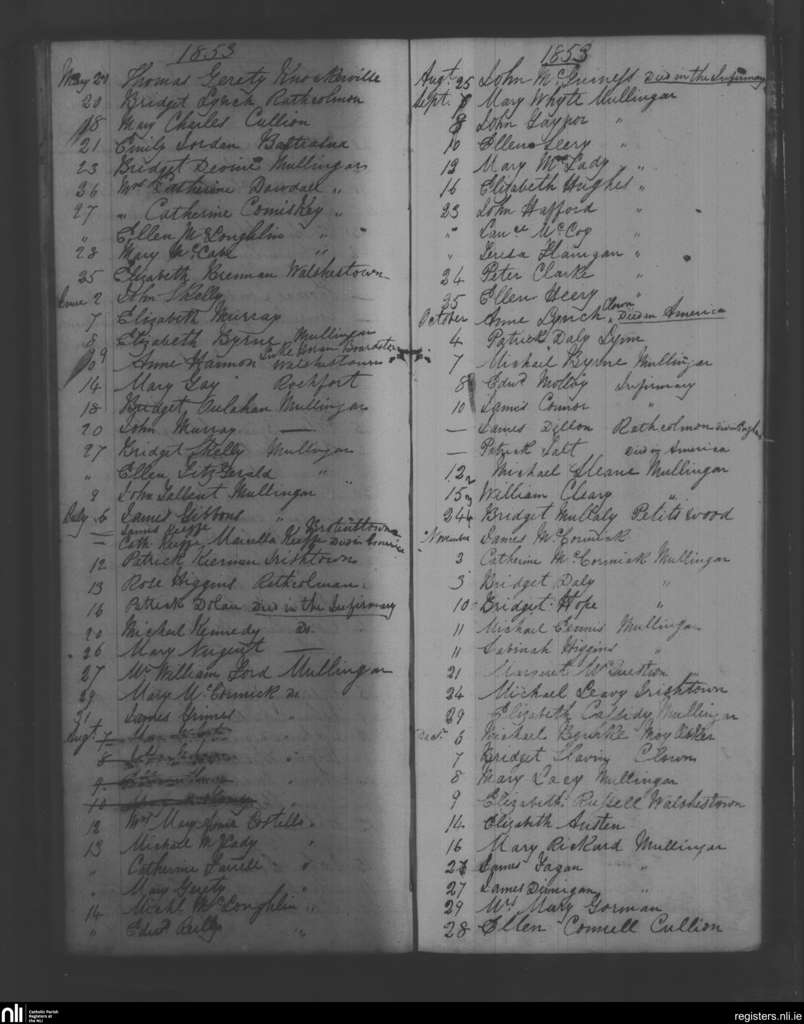 1853
May 20 Thomas Gerety Knockerville
20 Bridget Lynch Rathcolmon
18 Mary Charles Cullion
21 Emily Jordan
23 Bridget Devine Mullingar
26 Mrs Catherine Dowdall "
27 " Catherine Comiskey "
" Ellen McLoughlin " "
28 Mary McCabe "
25 Elizabeth Brennan Walshestown
June 2 John Skelly
7 Elizabeth Murray
8 Elizabeth Byrne Mullingar
9 Luke Boardstown
10 Anne Hannon Walshestown
14 Mary Gay Rochfort
18 Bridget Oulahan Mullingar
20 John Murray —
27 Bridget Skelly Mullingar
" Ellen FitzGerald "
9 John Talbent Mullingar "
July 6 James Gibbons "
— James Keeffe Brotenstown
— Cath Keeffe Marcella Keeffe Died in America
12 Patrick Kiernan Irishtown
13 Rose Higgins Rathcolman
16 Patrick Dolan Died in the Infirmary
20 Michael Kennedy Do.
26 Mary Nugent —
27 Mr William Ford Mullingar
29 Mary McCormick do
31 James Grimes "
Augt 7
8
9
10
12 Mrs Mary Costello "
13 Michael "
" Catherine "
" Mary Gerety "
14 Michl McLoughlin "
" Edwd Reilly "
1853
Augt 25 John McGuiness Died in the Infirmary
Sept. 6 Mary Whyte Mullingar
8 John Gaynor "
10 Ellen Seery "
12 Mary "
16 Elizabeth Hughes "
23 John Hafford "
" Lance McCoy "
" Teresa Flanigan "
24 Peter Clarke "
25 Ellen Seery "
October Anne Lynch Clown Died in America
4 Patrick Daly Lynn
7 Michael Byrne Mullingar
8 Edwd Motley Infirmary
10 James Connor "
— James Dillon Rathcolmon
— Patrick Salt Died in America
12 Michael Sloane Mullingar
15 William Cleary "
24 Bridget Mullaly Petitswood
November James McCormick
3 Catherine McCormick Mullingar
3 Bridget Daly "
10 Bridget Hope "
11 Michael Ennis Mullingar
11 Higgins "
21 Margaret
24 Michael Leavy Irishtown
29 Elizabeth Cassidy Mullingar
Decr 6 Michael Bourke Moyasker
7 Bridget Slavin Clown
8 Mary Lacy Mullingar
9 Elizabeth Russell Walshestown
14 Elizabeth Austen
16 Mary Rickard Mullingar
26 James Fagan "
27 James Dunigan "
29 Mrs Mary Gorman
28 Ellen Connell Cullion
nli Catholic Parish Registers at the NLI
registers.nli.ie